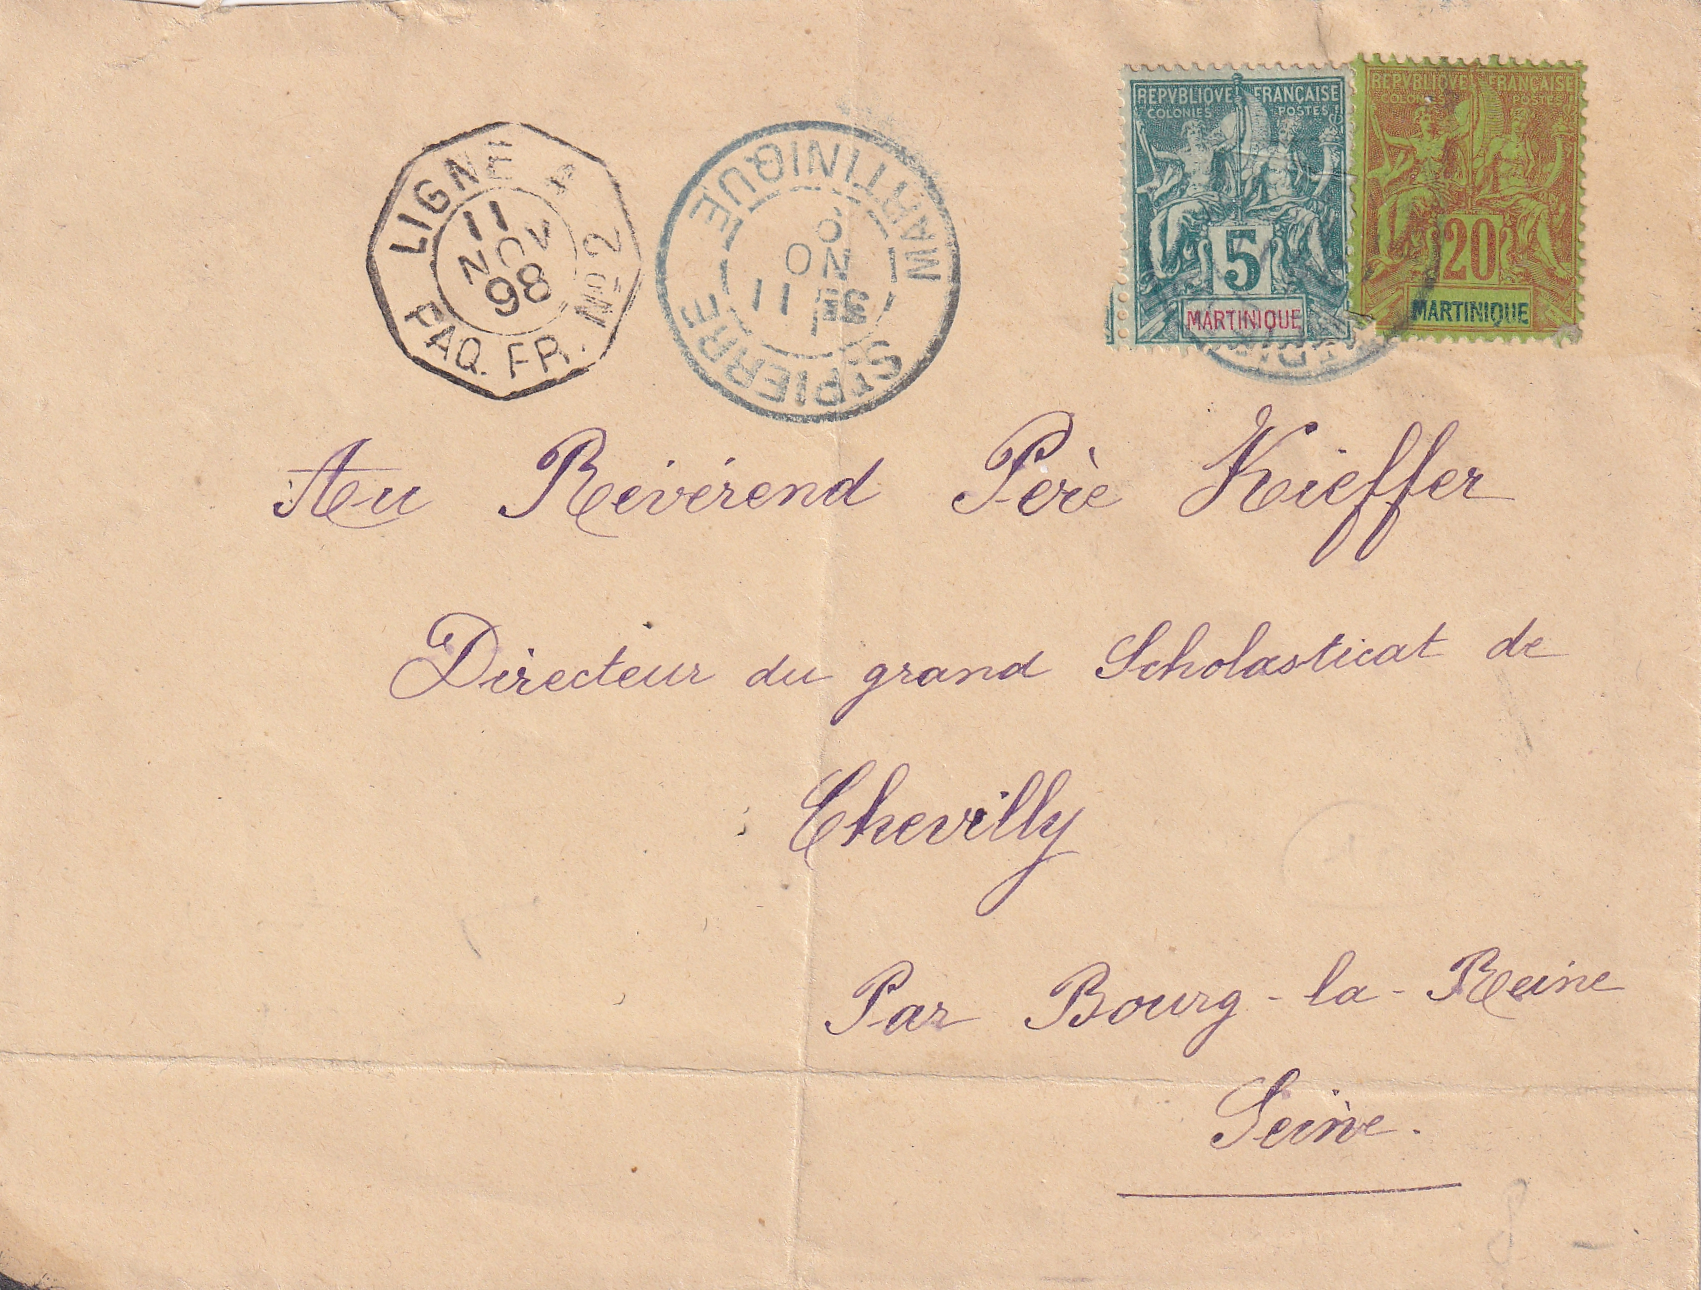 LIGNE A
11
NOV
98
PAQ. FR. Nº 2
MARTINIQUE
ST PIERRE
1E
11
NO
REPVBLIQVE FRANÇAISE
COLONIES POSTES
5
MARTINIQUE
REPVBLIQVE FRANÇAISE
COLONIES POSTES
20
MARTINIQUE
Au Révérend Père Kieffer
Directeur du grand Scholasticat de
Chevilly
Par Bourg-la-Reine
Seine.